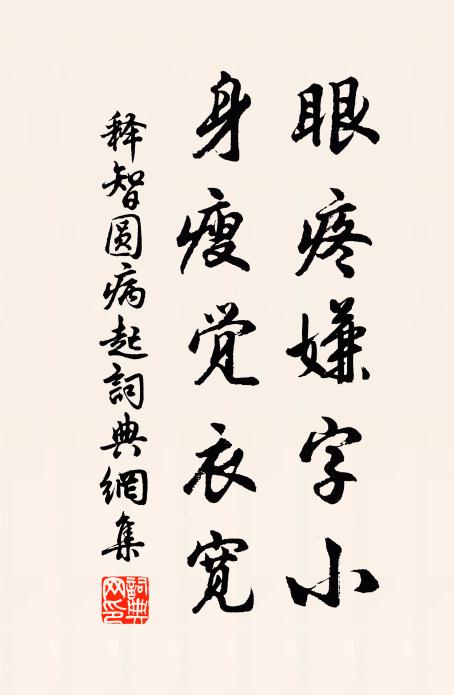 眼疼嫌字小
身瘦觉衣宽
释智圆病起詞典網集
詞典网印